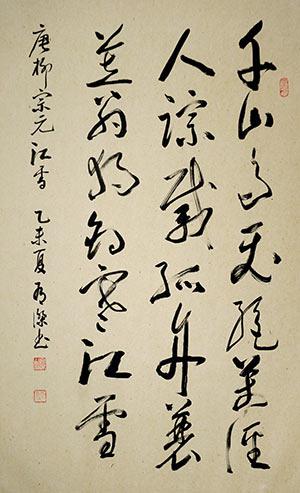 千山鳥飛絕萬徑
人踪滅孤舟蓑
笠翁獨釣寒江雪
唐柳宗元江雪 乙未夏 傑书